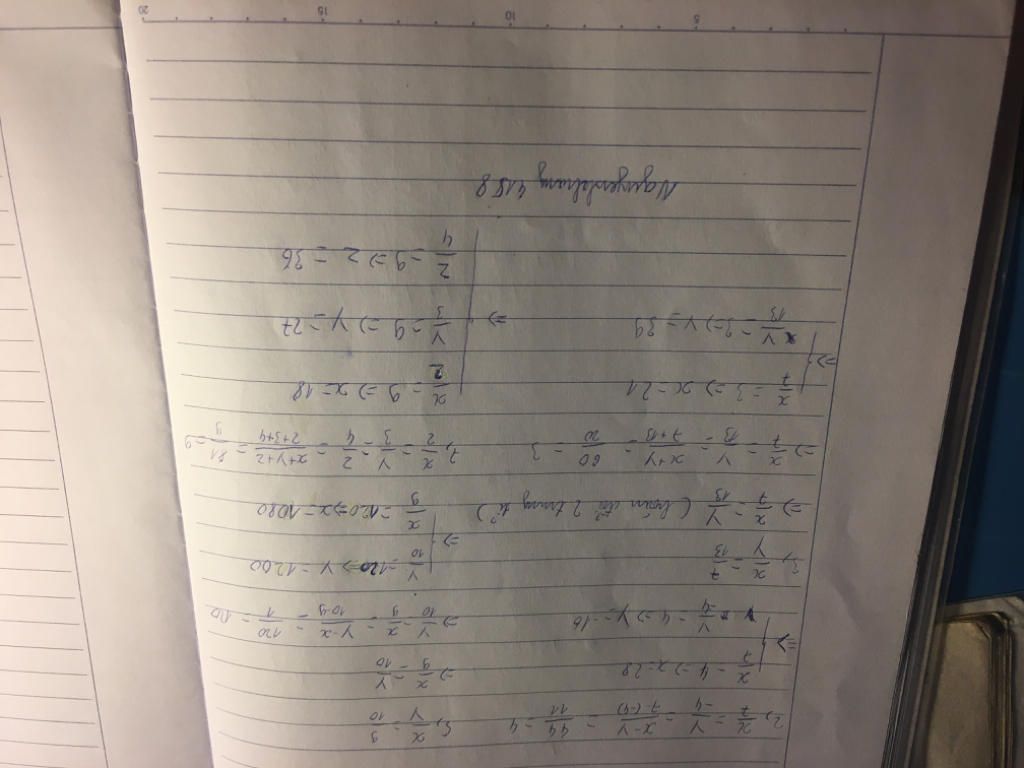 2, x/7 = y/-4 = x-y/7-(-4) = 44/11 = 4
=> x/7 = 4 => x = 28
y/-4 = 4 => y = -16
3, x/y = 7/13
=> x/7 = y/13 ( hoán đổi 2 trung tỉ )
=> x/7 = y/13 = x+y/7+13 = 60/20 = 3
=> x/7 = 3 => x = 21
y/13 = 3 => y = 39
6, x/y = 9/10
=> x/9 = y/10
=> y/10 = x/9 = y-x/10-9 = 120/1 = 120
=> y/10 = 120 => y = 1200
x/9 = 120 => x = 1080
7, x/2 = y/3 = z/4 = x+y+z/2+3+4 = 81/9 = 9
=> x/2 = 9 => x = 18
y/3 = 9 => y = 27
z/4 = 9 => z = 36
Nguyentrang 4158
5 10 15 20